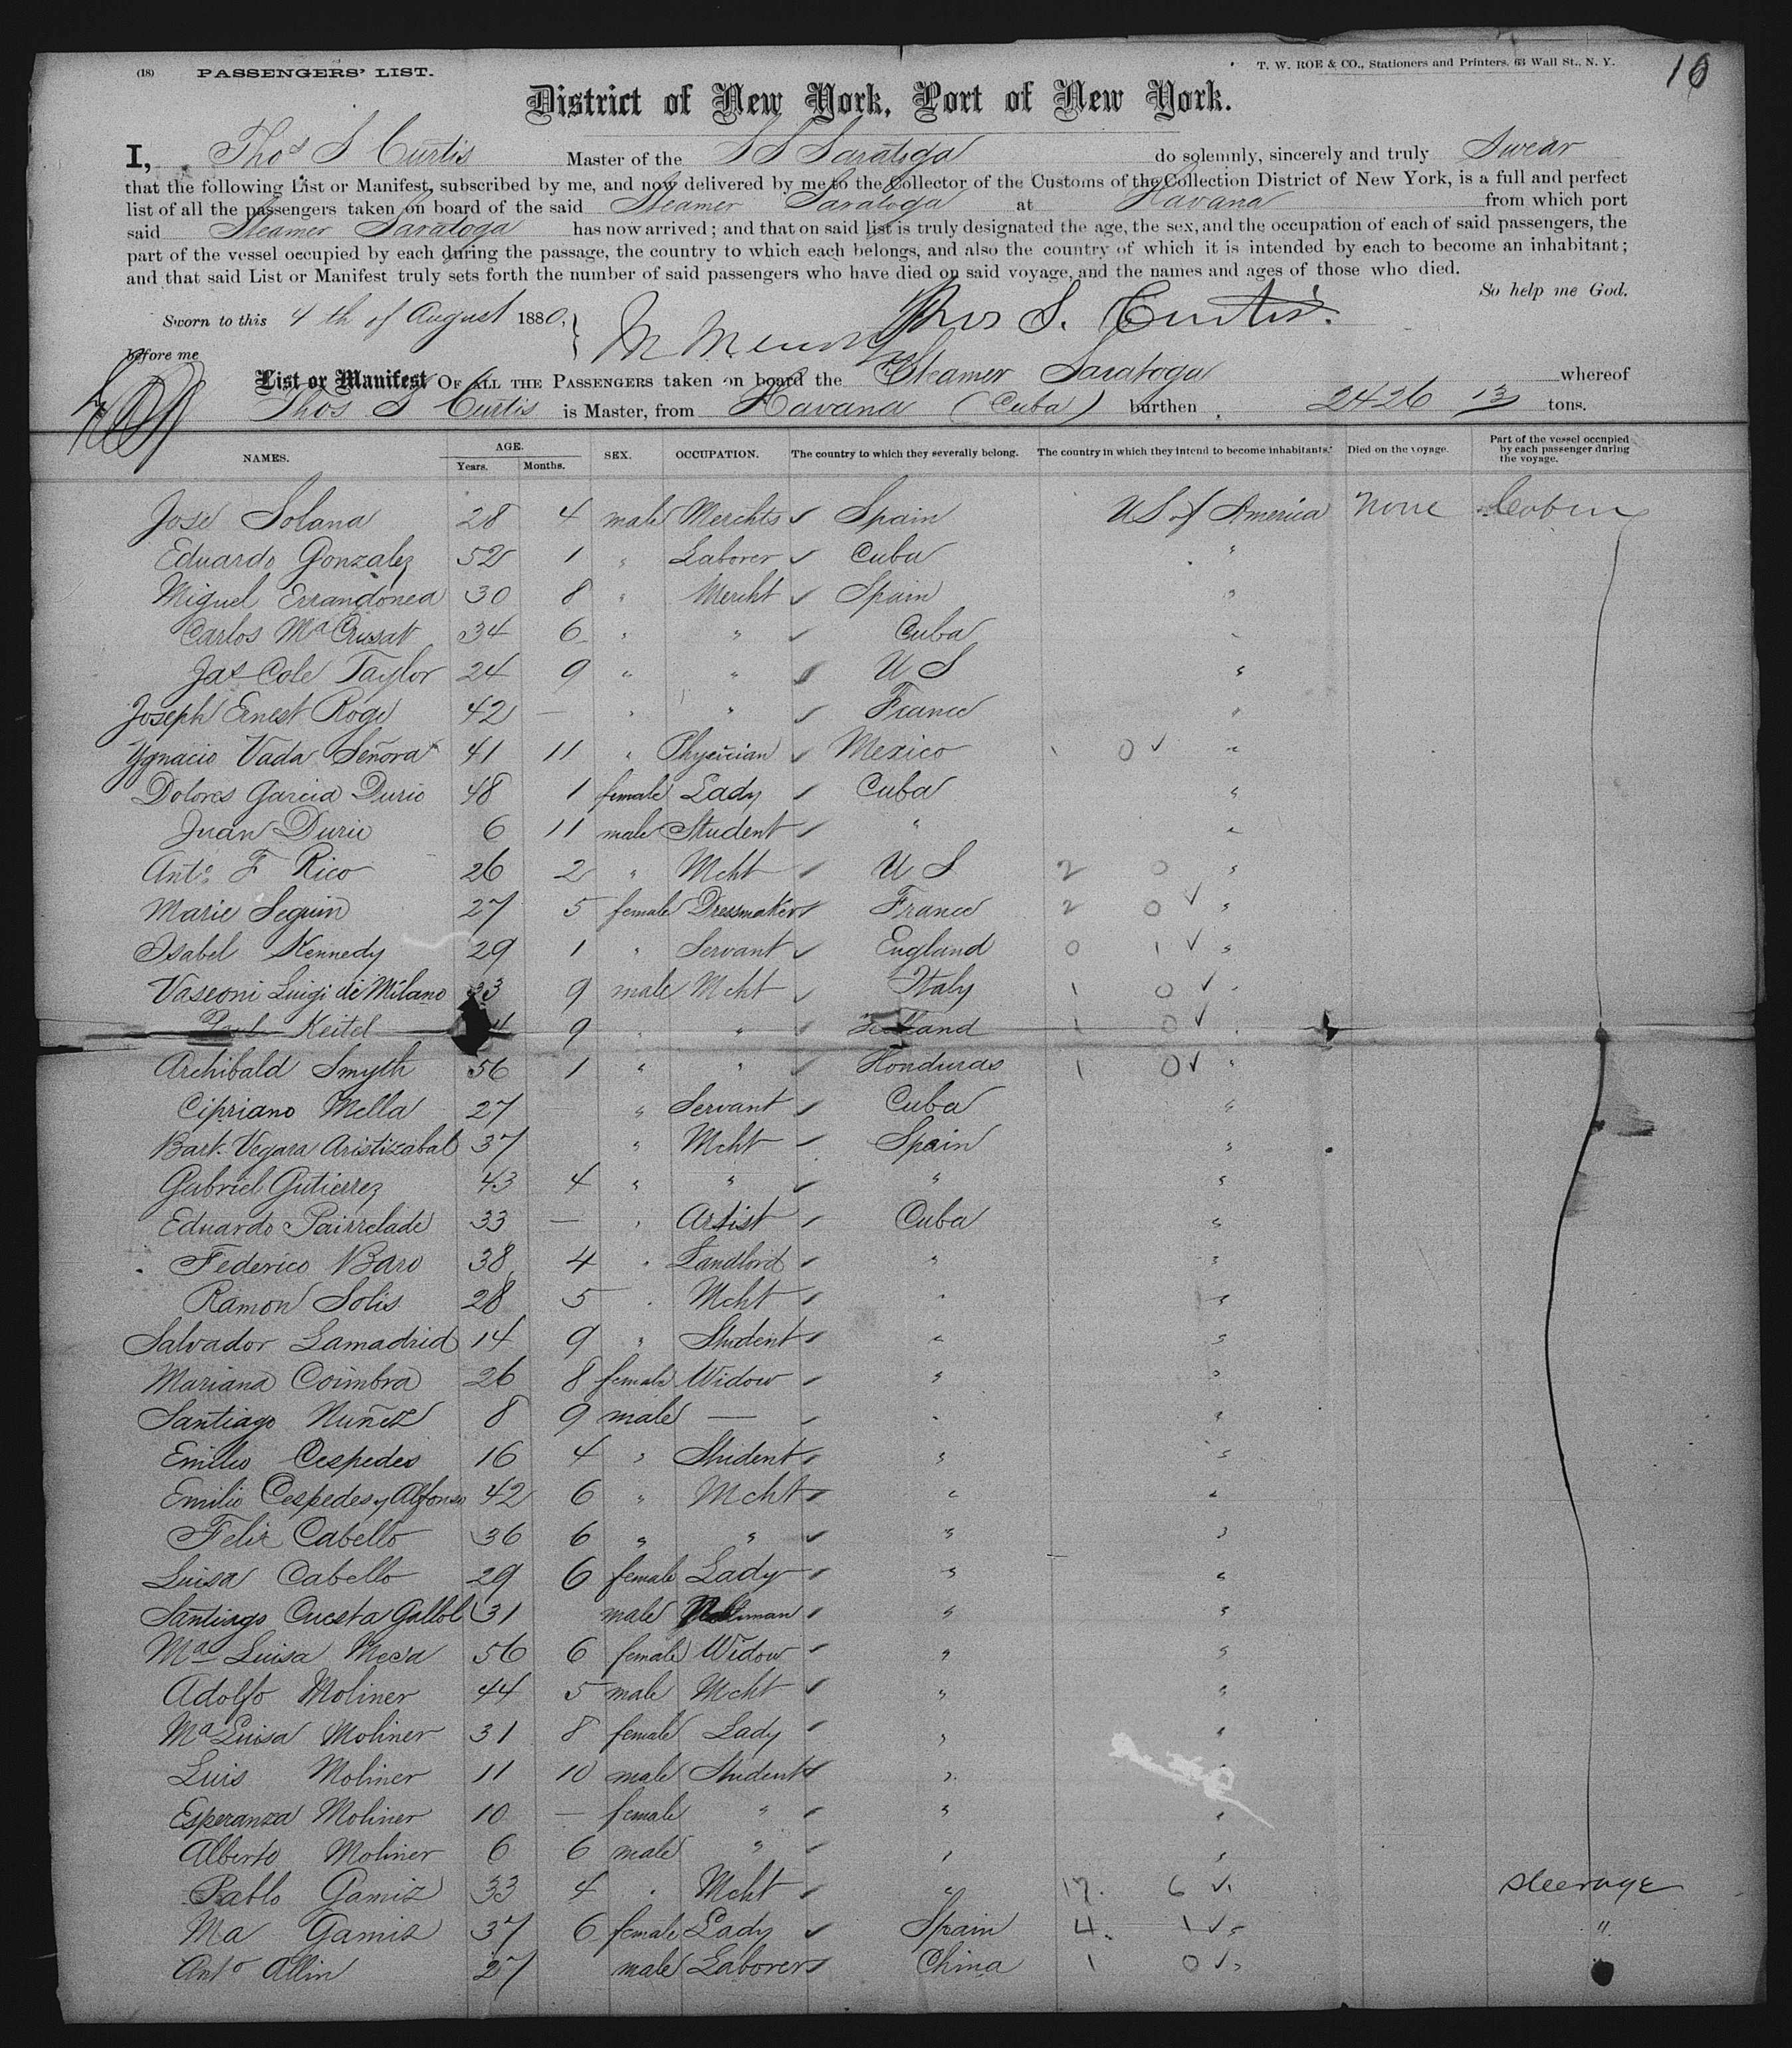 (18) PASSENGERS' LIST. T. W. ROE & CO., Stationers and Printers, 63 Wall St., N. Y. 10
District of New York, Port of New York.
I, Thos S Curtis Master of the SS Saratoga do solemnly, sincerely and truly Swear
that the following List or Manifest, subscribed by me, and now delivered by me to the Collector of the Customs of the Collection District of New York, is a full and perfect
list of all the passengers taken on board of the said Steamer Saratoga at Havana from which port
said Steamer Saratoga has now arrived; and that on said list is truly designated the age, the sex, and the occupation of each of said passengers, the
part of the vessel occupied by each during the passage, the country to which each belongs, and also the country of which it is intended by each to become an inhabitant;
and that said List or Manifest truly sets forth the number of said passengers who have died on said voyage, and the names and ages of those who died.
So help me God.
Sworn to this 4th of August 1880, Thos S. Curtis.
before me
List or Manifest OF ALL THE PASSENGERS taken on board the Steamer Saratoga whereof
Thos S Curtis is Master, from Havana (Cuba) burthen 2426 13 tons.
NAMES. AGE. Years. Months. SEX. OCCUPATION. The country to which they severally belong. The country in which they intend to become inhabitants. Died on the voyage. Part of the vessel occupied by each passenger during the voyage.
Jose Solana 28 4 male Merchts ✓ Spain US of America None Cabin
Eduardo Gonzalez 52 1 " Laborer ✓ Cuba "
Miguel Errandonea 30 8 " Mercht ✓ Spain "
Carlos Ma Crusat 34 6 " " ✓ Cuba "
Jas Cole Taylor 24 9 " " ✓ U S "
Joseph Ernest Roge 42 — " " ✓ France "
Ygnacio Vada Señora 41 11 " Physician ✓ Mexico 1 0 ✓ "
Dolores Garcia Durio 48 1 female Lady ✓ Cuba "
Juan Durio 6 11 male Student ✓ " "
Anto F Rico 26 2 " Mcht ✓ U S 2 0 "
Marie Seguin 27 5 female Dressmaker ✓ France 2 0 ✓ "
Isabel Kennedy 29 1 " Servant ✓ England 0 1 ✓ "
Vaseoni Luigi de Milano 33 9 male Mcht ✓ Italy 1 0 ✓ "
Keitel 9 " " ✓ 1 0 ✓ "
Archibald Smyth 56 1 " " ✓ Honduras 1 0 ✓ "
Cipriano Mella 27 " Servant ✓ Cuba "
Bart. Vegara Aristizabal 37 " Mcht ✓ Spain "
Gabriel Gutierrez 43 4 " " ✓ " "
Eduardo Pairrelade 33 — " Artist ✓ Cuba "
Federico Baro 38 4 " Landlord ✓ " "
Ramon Solis 28 5 " Mcht ✓ " "
Salvador Lamadrid 14 9 " Student ✓ " "
Mariana Coimbra 26 8 female Widow ✓ " "
Santiago Nuñez 8 9 male — ✓ " "
Emilio Cespedes 16 4 " Student ✓ " "
Emilio Cespedes y Alfonso 42 6 " Mcht ✓ " "
Felix Cabello 36 6 " " ✓ " "
Luisa Cabello 29 6 female Lady ✓ " "
Santiago Cuesta Gallol 31 male ✓ " "
Ma Luisa Mesa 56 6 female Widow ✓ " "
Adolfo Moliner 44 5 male Mcht ✓ " "
Ma Luisa Moliner 31 8 female Lady ✓ " "
Luis Moliner 11 10 male Student ✓ " "
Esperanza Moliner 10 — female " ✓ " "
Alberto Moliner 6 6 male " ✓ " "
Pablo Gamiz 33 4 " Mcht ✓ " 17. 6 ✓ Steerage
Ma Gamiz 37 6 female Lady ✓ Spain 4. 1 ✓ " "
Anto Allin 27 male Laborer ✓ China 1 0 ✓ "